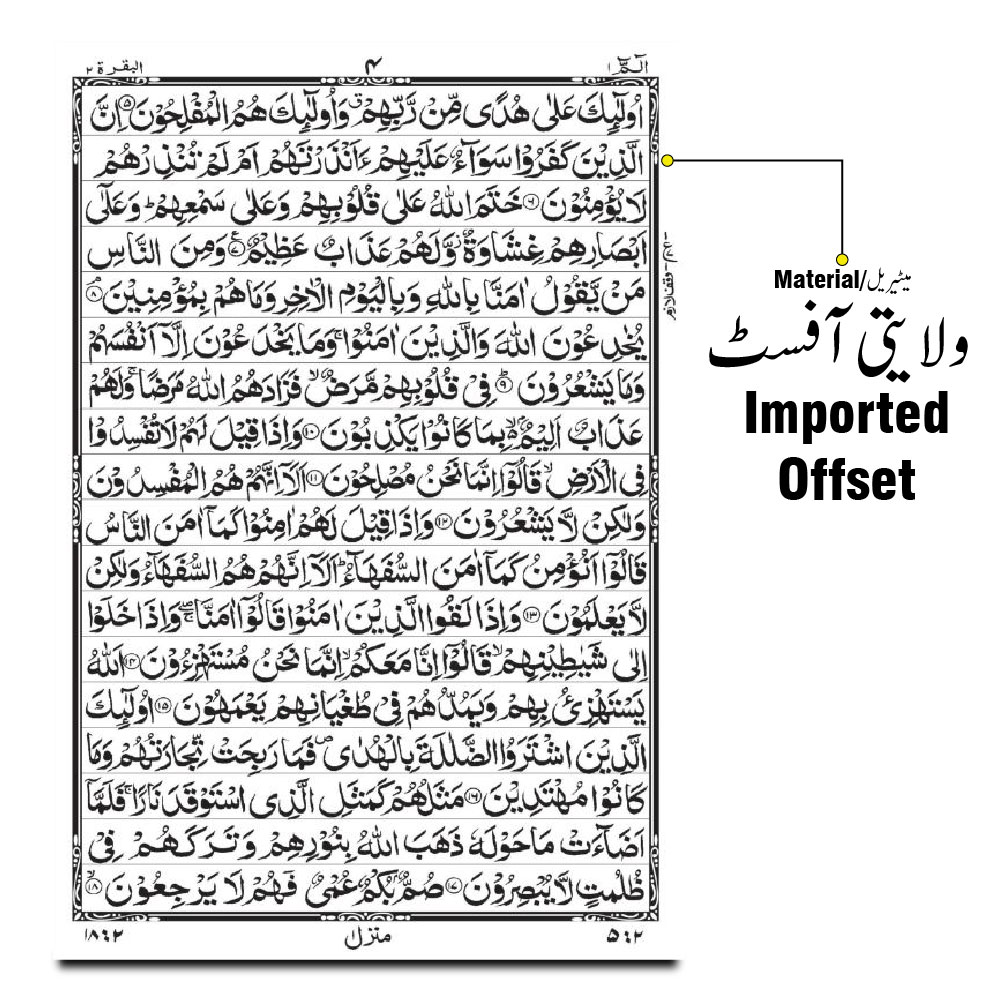 الٓمّٓ ١
۴
البقرة ٢
اُولٰٓئِكَ عَلٰى هُدًى مِّنْ رَّبِّهِمْ ۗ وَاُولٰٓئِكَ هُمُ الْمُفْلِحُوْنَ ۝۵ اِنَّ
الَّذِيْنَ كَفَرُوْا سَوَآءٌ عَلَيْهِمْ ءَاَنْذَرْتَهُمْ اَمْ لَمْ تُنْذِرْهُمْ
لَا يُؤْمِنُوْنَ ۝۶ خَتَمَ اللّٰهُ عَلٰى قُلُوْبِهِمْ وَعَلٰى سَمْعِهِمْ ؕ وَعَلٰٓى
اَبْصَارِهِمْ غِشَاوَةٌ ؗ وَّلَهُمْ عَذَابٌ عَظِيْمٌ ۝۷ وَمِنَ النَّاسِ
مَنْ يَّقُوْلُ اٰمَنَّا بِاللّٰهِ وَبِالْيَوْمِ الْاٰخِرِ وَمَا هُمْ بِمُؤْمِنِيْنَ ۝۸
يُخٰدِعُوْنَ اللّٰهَ وَالَّذِيْنَ اٰمَنُوْا ۚ وَمَا يَخْدَعُوْنَ اِلَّاۤ اَنْفُسَهُمْ
وَمَا يَشْعُرُوْنَ ۝۹ فِيْ قُلُوْبِهِمْ مَّرَضٌ ۙ فَزَادَهُمُ اللّٰهُ مَرَضًا ۚ وَلَهُمْ
عَذَابٌ اَلِيْمٌۢ ۙ بِمَا كَانُوْا يَكْذِبُوْنَ ۝۱۰ وَاِذَا قِيْلَ لَهُمْ لَا تُفْسِدُوْا
فِى الْاَرْضِ ۙ قَالُوْٓا اِنَّمَا نَحْنُ مُصْلِحُوْنَ ۝۱۱ اَلَآ اِنَّهُمْ هُمُ الْمُفْسِدُوْنَ
وَلٰكِنْ لَّا يَشْعُرُوْنَ ۝۱۲ وَاِذَا قِيْلَ لَهُمْ اٰمِنُوْا كَمَآ اٰمَنَ النَّاسُ
قَالُوْٓا اَنُؤْمِنُ كَمَآ اٰمَنَ السُّفَهَآءُ ؕ اَلَآ اِنَّهُمْ هُمُ السُّفَهَآءُ وَلٰكِنْ
لَّا يَعْلَمُوْنَ ۝۱۳ وَاِذَا لَقُوا الَّذِيْنَ اٰمَنُوْا قَالُوْٓا اٰمَنَّا ۖۚ وَاِذَا خَلَوْا
اِلٰى شَيٰطِيْنِهِمْ ۙ قَالُوْٓا اِنَّا مَعَكُمْ ۙ اِنَّمَا نَحْنُ مُسْتَهْزِءُوْنَ ۝۱۴ اَللّٰهُ
يَسْتَهْزِئُ بِهِمْ وَيَمُدُّهُمْ فِيْ طُغْيَانِهِمْ يَعْمَهُوْنَ ۝۱۵ اُولٰٓئِكَ
الَّذِيْنَ اشْتَرَوُا الضَّلٰلَةَ بِالْهُدٰى ۪ فَمَا رَبِحَتْ تِّجَارَتُهُمْ وَمَا
كَانُوْا مُهْتَدِيْنَ ۝۱۶ مَثَلُهُمْ كَمَثَلِ الَّذِى اسْتَوْقَدَ نَارًا ۚ فَلَمَّآ
اَضَآءَتْ مَا حَوْلَهٗ ذَهَبَ اللّٰهُ بِنُوْرِهِمْ وَتَرَكَهُمْ فِيْ
ظُلُمٰتٍ لَّا يُبْصِرُوْنَ ۝۱۷ صُمٌّۢ بُكْمٌ عُمْيٌ فَهُمْ لَا يَرْجِعُوْنَ ۝۱۸
منزل
میٹیریل/Material
ولایتی آفسٹ
Imported
Offset